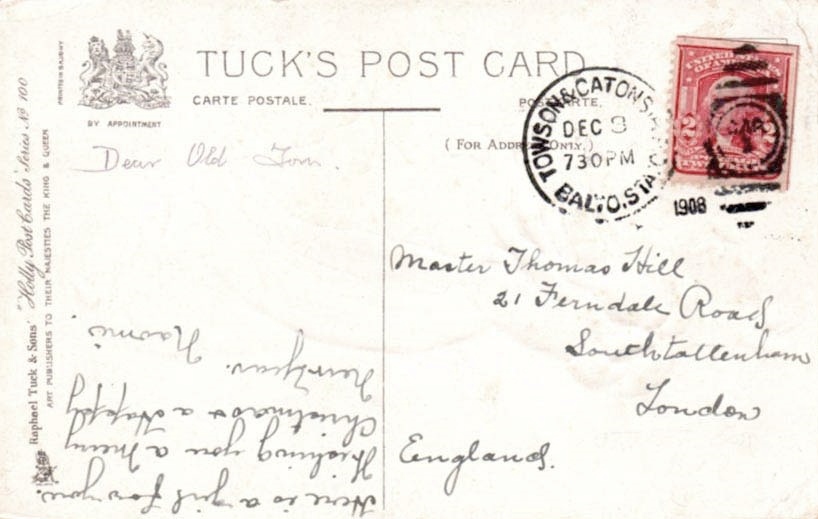 TUCK'S POST CARD
CARTE POSTALE.
POSTKARTE.
BY APPOINTMENT
( For Address Only. )
PRINTED IN SAXONY
Raphael Tuck & Sons' "Holly Post Cards" Series No 100
ART PUBLISHERS TO THEIR MAJESTIES THE KING & QUEEN
TOWSON & CATONS
DEC 8
730PM
BALTO. STA
1908
UNITED STATES
OF AMERICA
2 2
Dear Old Tom.
Here is a girl for you.
Wishing you a merry
Christmas & a Happy
New Year.
Naomi.
Master Thomas Hill
21 Ferndale Road
South tattenham
London
England.